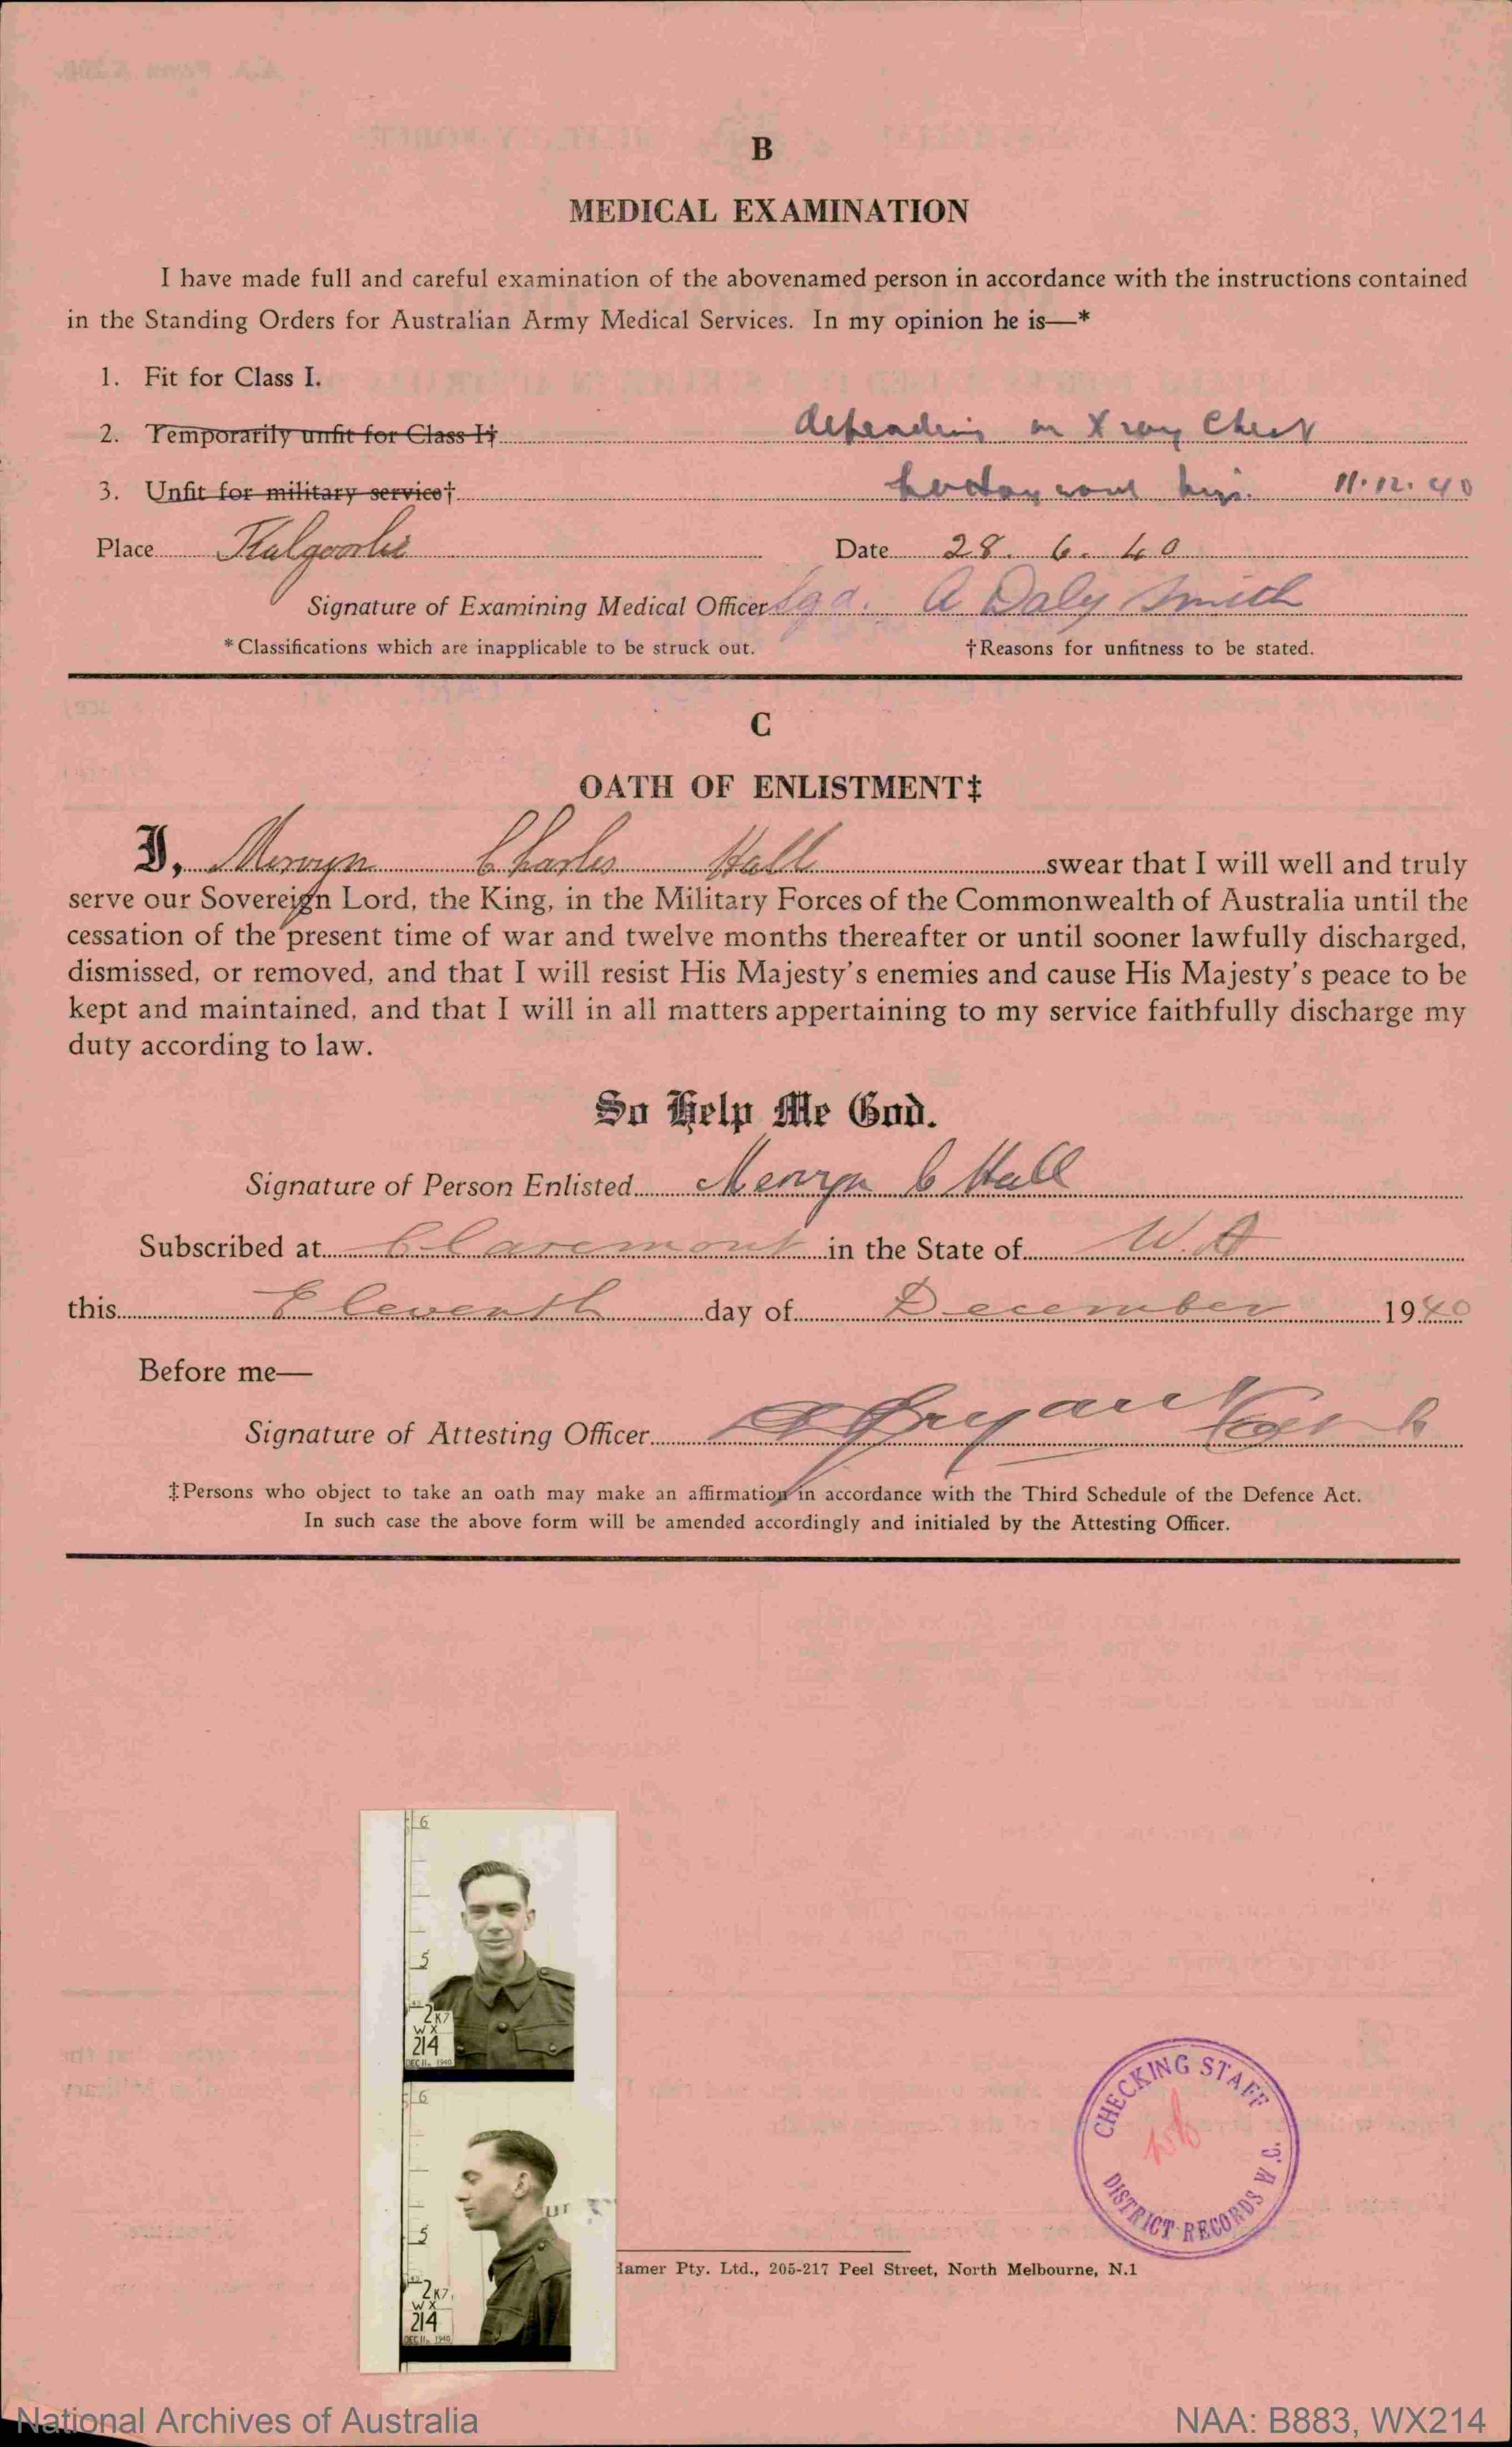 B
MEDICAL EXAMINATION
I have made full and careful examination of the abovenamed person in accordance with the instructions contained
in the Standing Orders for Australian Army Medical Services. In my opinion he is—*
1. Fit for Class I.
2. Temporarily unfit for Class I† depending on X ray Chest
3. Unfit for military service† 11.12.40
Place Kalgoorlie Date 28. 6. 40
Signature of Examining Medical Officer Sgd. A Daly Smith
*Classifications which are inapplicable to be struck out. †Reasons for unfitness to be stated.
C
OATH OF ENLISTMENT‡
I, Mervyn Charles Hall swear that I will well and truly
serve our Sovereign Lord, the King, in the Military Forces of the Commonwealth of Australia until the
cessation of the present time of war and twelve months thereafter or until sooner lawfully discharged,
dismissed, or removed, and that I will resist His Majesty's enemies and cause His Majesty's peace to be
kept and maintained, and that I will in all matters appertaining to my service faithfully discharge my
duty according to law.
So Help Me God.
Signature of Person Enlisted Mervyn C Hall
Subscribed at Claremont in the State of W.A
this Eleventh day of December 1940
Before me—
Signature of Attesting Officer
‡Persons who object to take an oath may make an affirmation in accordance with the Third Schedule of the Defence Act.
In such case the above form will be amended accordingly and initialed by the Attesting Officer.
6
5
2K7
WX
214
DEC 11. 1940
6
5
2K7.
WX
214
DEC 11. 1940
CHECKING STAFF
DISTRICT RECORDS W.C.
Hamer Pty. Ltd., 205-217 Peel Street, North Melbourne, N.1
National Archives of Australia
NAA: B883, WX214